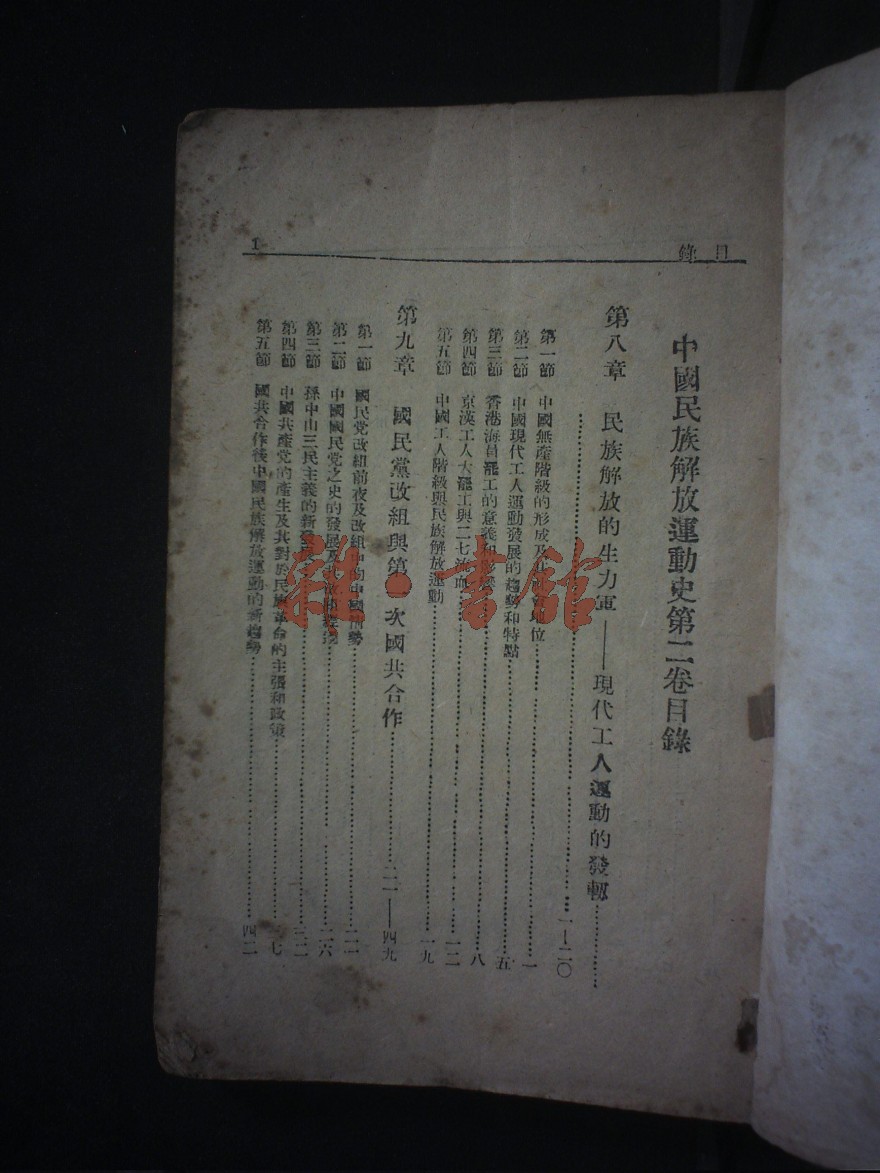 目錄
1
中國民族解放運動史第二卷目錄
第八章 民族解放的生力軍——現代工人運動的發軔
一—二〇
第一節 中國無產階級的形成及其社會地位 一
第二節 中國現代工人運動發展的趨勢和特點 五
第三節 香港海員罷工的意義和 八
第四節 京漢工人大罷工與二七流血 一二
第五節 中國工人階級與民族解放運動 一九
第九章 國民黨改組與第一次國共合作 二一—四九
第一節 國民党改組前夜及改組中的中國情勢 二一
第二節 中國國民党之史的發展及 二六
第三節 孫中山三民主義的新 三二
第四節 中國共產党的產生及其對於民族革命的主張和政策 七
第五節 國共合作後中國民族解放運動的新趨勢 四二
雜·書館